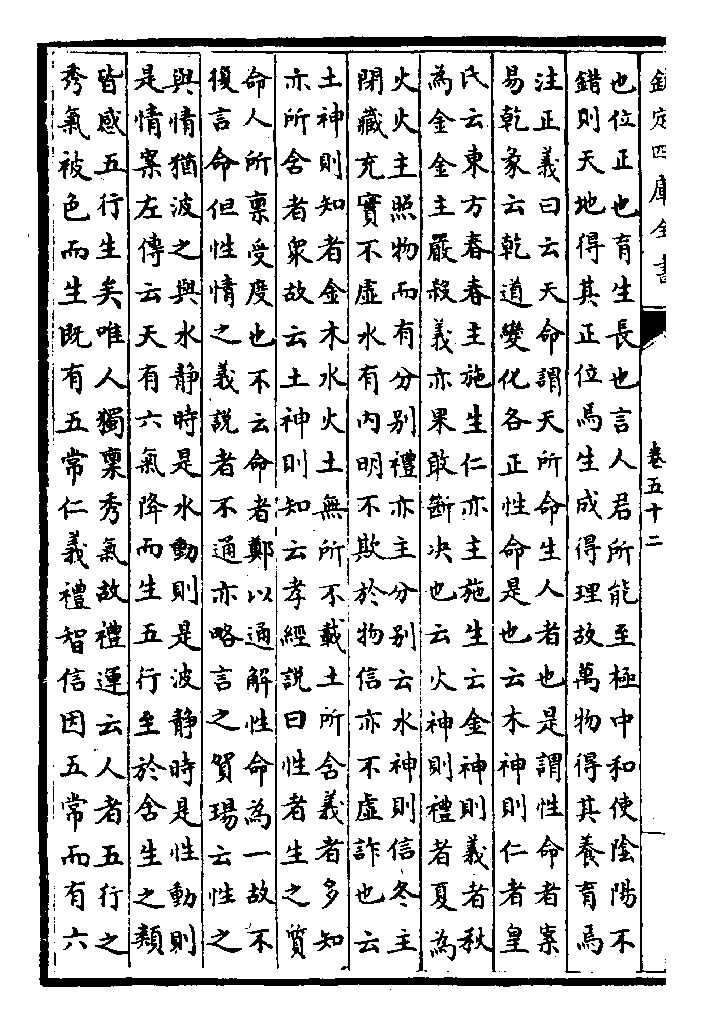 欽定四庫全書
卷五十二
也位正也育生長也言人君所能至極中和使陰陽不
錯則天地得其正位焉生成得理故萬物得其養育焉
注正義曰云天命謂天所命生人者也是謂性命者案
易乾彖云乾道變化各正性命是也云木神則仁者皇
氏云東方春春主施生仁亦主施生云金神則義者秋
為金金主嚴殺義亦果敢斷决也云火神則禮者夏為
火火主照物而有分别禮亦主分别云水神則信冬主
閉藏充實不虛水有内明不欺於物信亦不虛詐也云
土神則知者金木水火土無所不載土所含義者多知
亦所含者衆故云土神則知云孝經説曰性者生之質
命人所稟受度也不云命者鄭以通解性命為一故不
復言命但性情之義説者不通亦略言之賀瑒云性之
與情猶波之與水静時是水動則是波静時是性動則
是情案左傳云天有六氣降而生五行至於含生之類
皆感五行生矣唯人獨稟秀氣故禮運云人者五行之
秀氣被色而生既有五常仁義禮智信因五常而有六